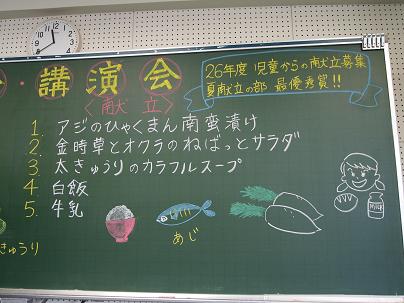 ・講演会
26年度 児童からの献立募集
夏献立の部 最優秀賞!!
〈献立〉
1. アジのひゃくまん南蛮漬け
2. 金時草とオクラのねばっとサラダ
3. 太きゅうりのカラフルスープ
4. 白飯
5. 牛乳
あじ
きゅうり